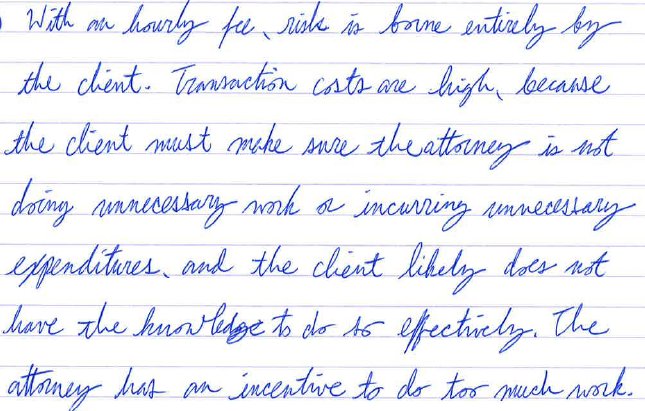 With an hourly fee, risk is borne entirely by
the client. Transaction costs are high, because
the client must make sure the attorney is not
doing unnecessary work or incurring unnecessary
expenditures, and the client likely does not
have the knowledge to do so effectively. The
attorney has an incentive to do too much work.